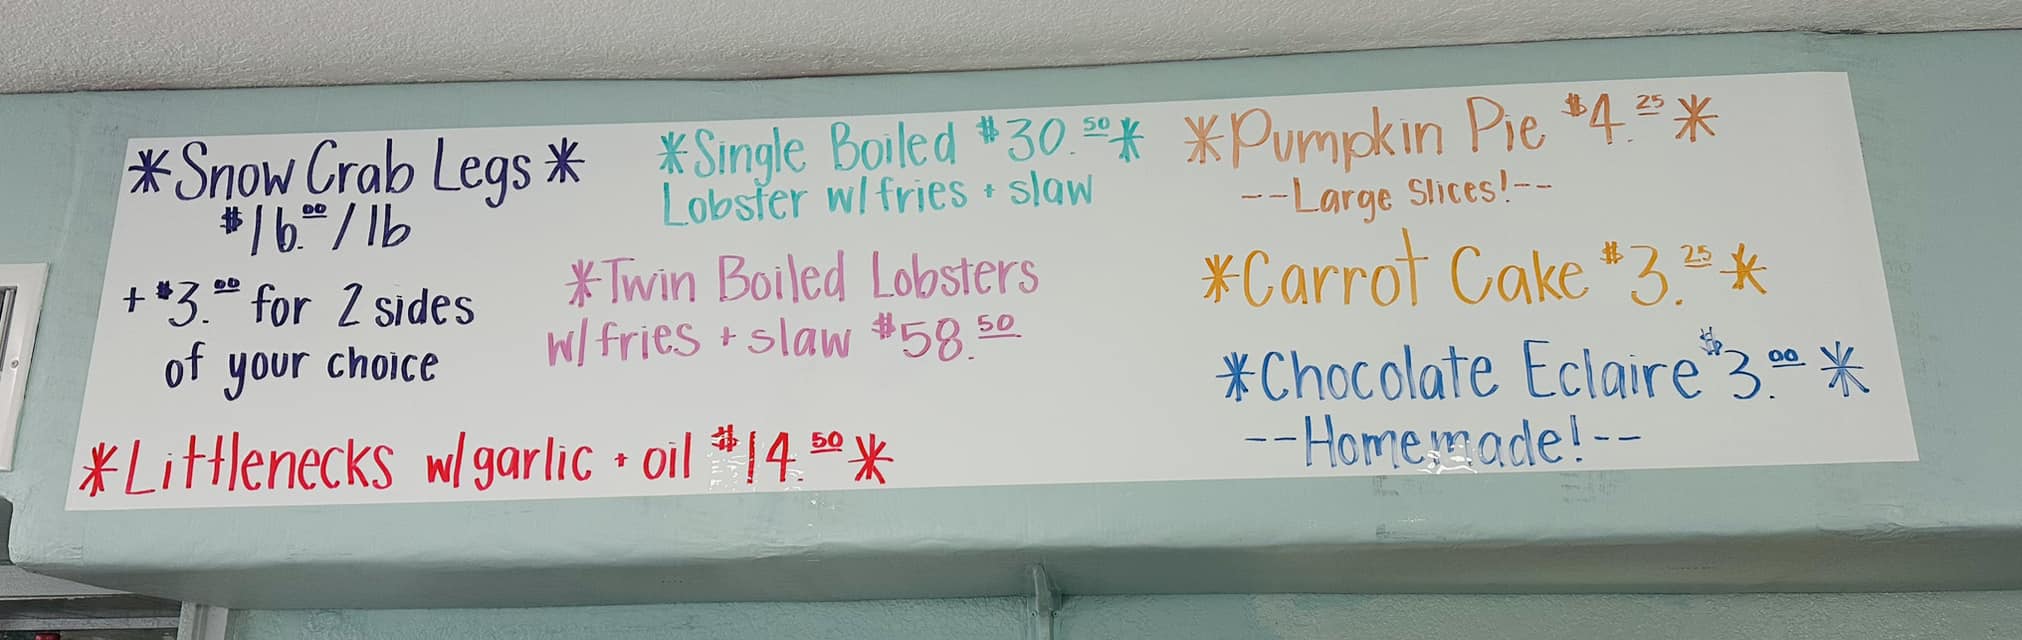 *Snow Crab Legs*
$16.00/lb
+$3.00 for 2 sides
of your choice
*Littlenecks w/garlic + oil $14.50*
*Single Boiled $30.50*
Lobster w/fries + slaw
*Twin Boiled Lobsters
w/fries + slaw $58.50
*Pumpkin Pie $4.25*
--Large Slices!--
*Carrot Cake $3.25*
*Chocolate Eclaire $3.00*
--Homemade!--